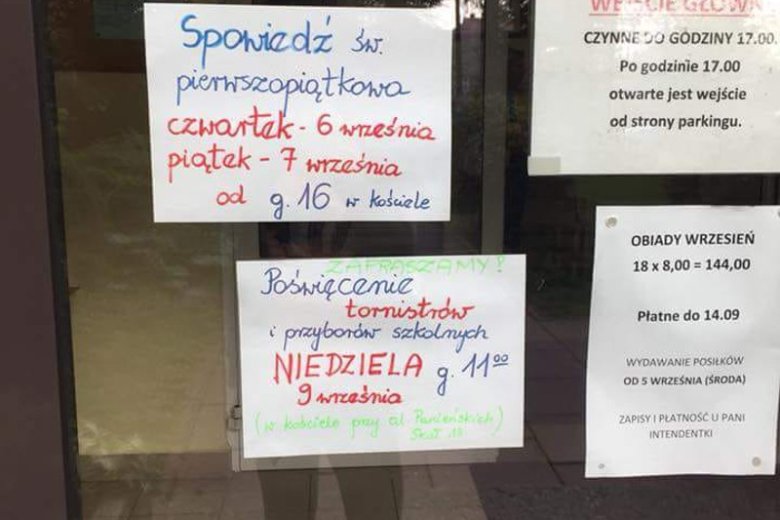 Spowiedź św.
pierwszopiątkowa
czwartek - 6 września
piątek - 7 września
od g. 16 w kościele
ZAPRASZAMY!
Poświęcenie
tornistrów
i przyborów szkolnych
NIEDZIELA g. 11⁰⁰
9 września
(w kościele przy al. Panieńskich
Skał 18)
WEJŚCIE GŁÓWNE
CZYNNE DO GODZINY 17.00.
Po godzinie 17.00
otwarte jest wejście
od strony parkingu.
OBIADY WRZESIEŃ
18 x 8,00 = 144,00
Płatne do 14.09
WYDAWANIE POSIŁKÓW
OD 5 WRZEŚNIA (ŚRODA)
ZAPISY I PŁATNOŚĆ U PANI
INTENDENTKI